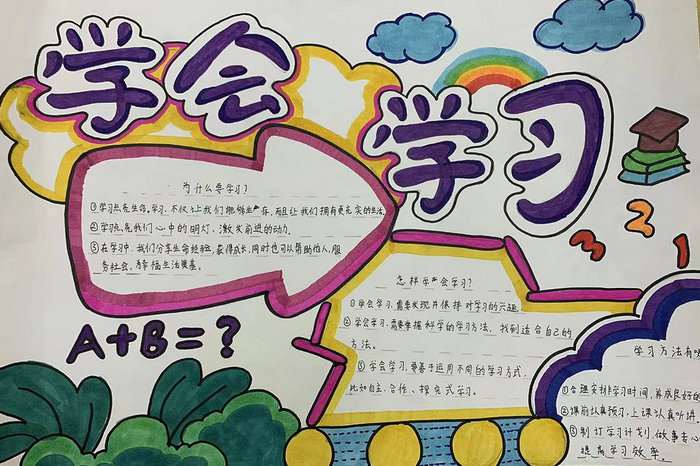 学会
学习
为什么要学习?
①学习就是生命。学习,不仅让我们能够生存,而且让我们拥有更充实的生活。
②学习就是我们心中的明灯、激发前进的动力。
③在学习中,我们分享生命经验,获得成长,同时也可以帮助他人,服
务社会。为幸福生活奠基。
怎样学会学习?
①学会学习,需要发现并保持对学习的兴趣
②学会学习,需要掌握科学的学习方法,找到适合自己的
方法。
③学会学习,要善于运用不同的学习方式,
比如自主、合作、探究式学习。
A+B=?
3 2 1
学习方法有
①合理安排学习时间,养成良好的
②课前认真预习,上课认真听讲
③制订学习计划,做事专心
提高学习效率。